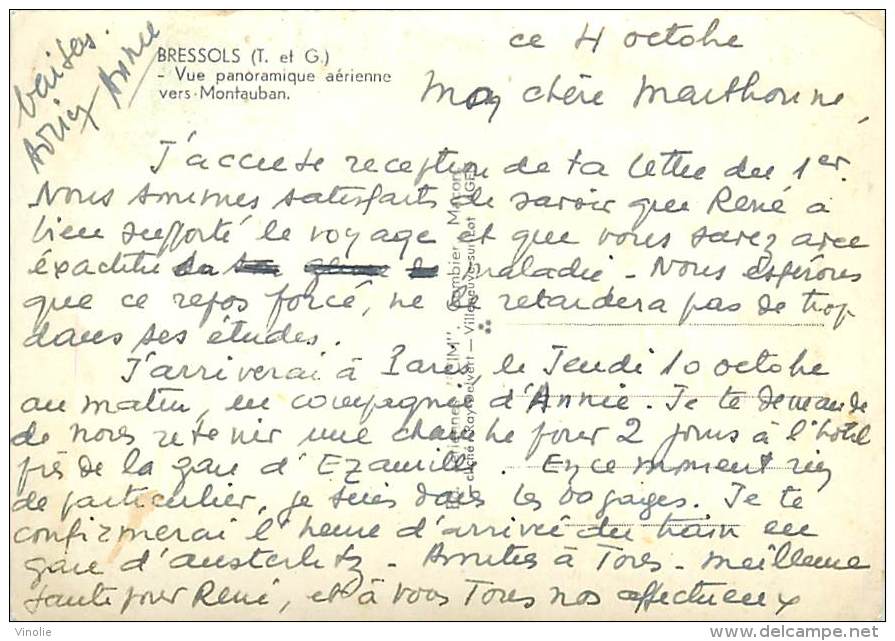 BRESSOLS (T. et G.)
- Vue panoramique aérienne
vers Montauban.
ce 4 octobre
Ma chère Marthonne,
J'accuse reception de ta lettre du 1er.
Nous sommes satisfaits de savoir que René a
bien supporté le voyage et que vous savez avec
éxactitude maladie - Nous Espérons
que ce repos forcé, ne le retardera pas de trop
dans ses études.
J'arriverai à Paris, le Jeudi 10 octobre
au matin, en compagnie d'Annie. Je te demande
de nous retenir une chambre pour 2 jours à l'hotel
près de la gare d'Ezanville. En ce moment rien
de particulier, je suis dans les bagages. Je te
confirmerai l'heure d'arrivée du train en
gare d'austerlitz - Amitiés à Tous - meilleure
santé pour René, et à vous Tous nos affectueux
baisers.
Annie
"CIM", Combier Mâcon
cliché Ray-Delvert — Villeneuve-sur-Lot
Vinolie
www.delcampe.net